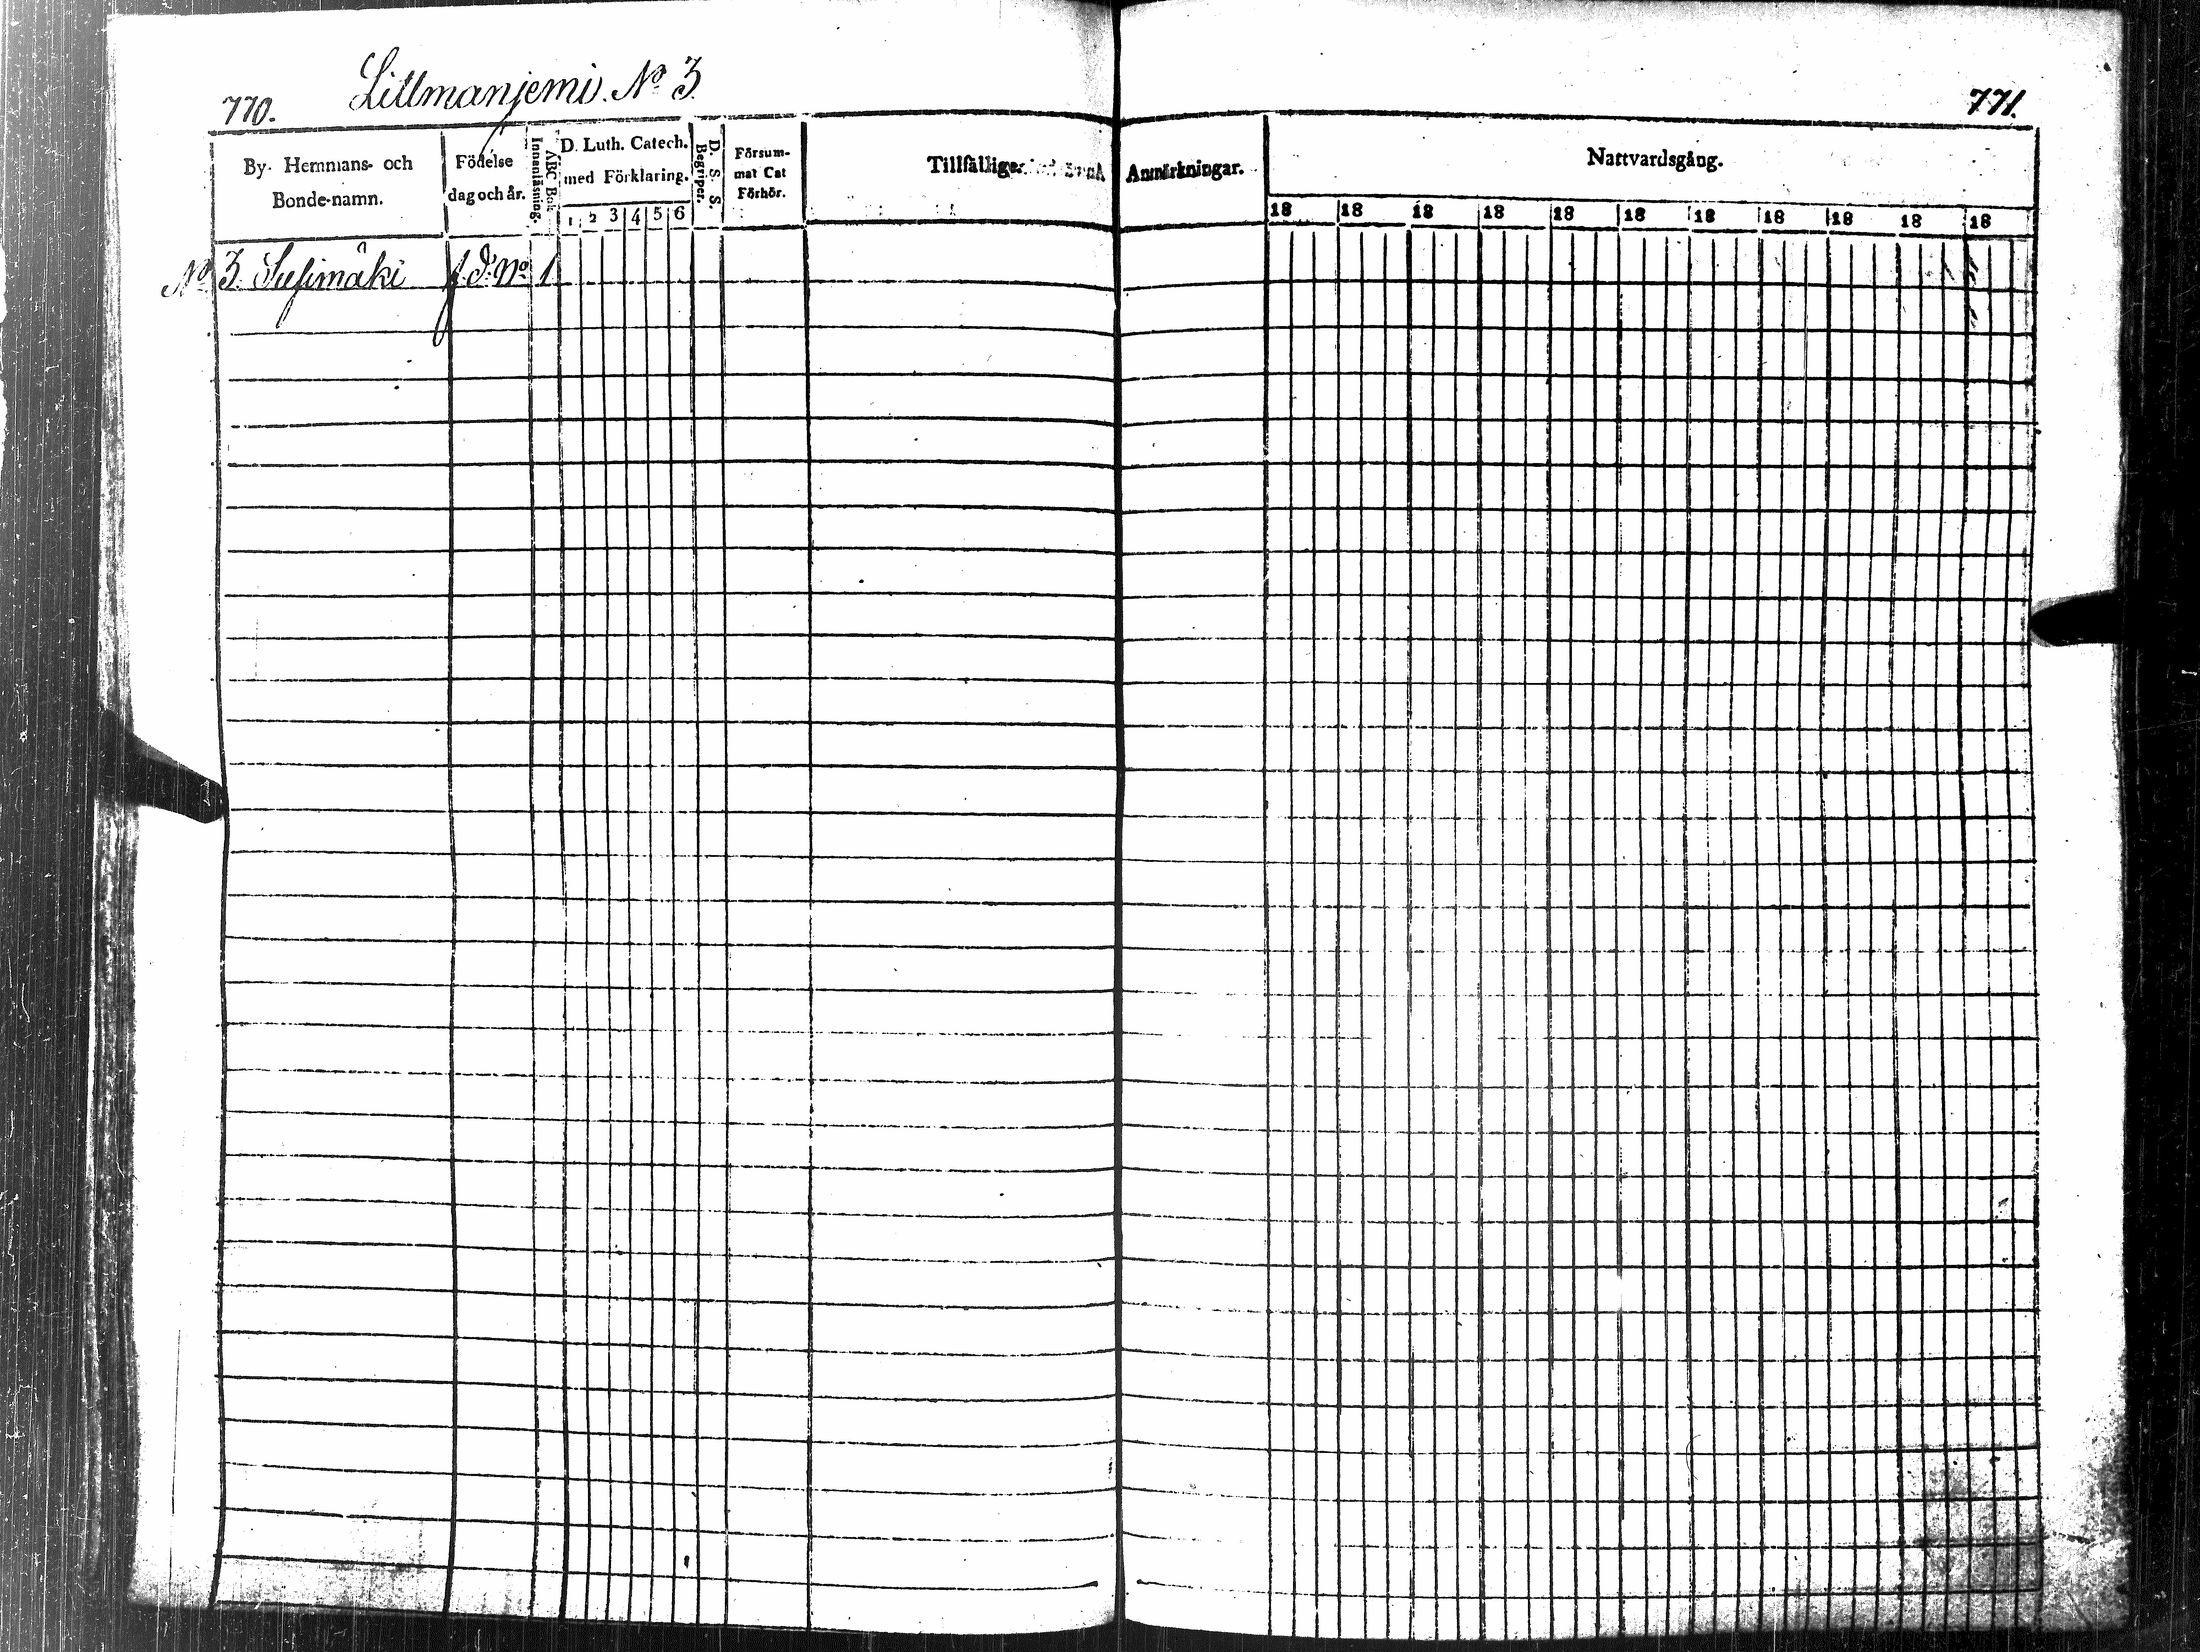 770.
Lillmanjemi. No 3
771.
By- Hemmans- och
Bonde-namn.
Födelse
dag och år.
Innanläsning.
ABC Bok
D. Luth. Catech.
med Förklaring.
1 2 3 4 5 6
D. S. S.
Begripen.
Försum-
mat Cat
Förhör.
Tillfällige
Anmärkningar.
Nattvardsgång.
18 18 18 18 18 18 18 18 18 18 18
No 3. Susimäki f. d. No 1